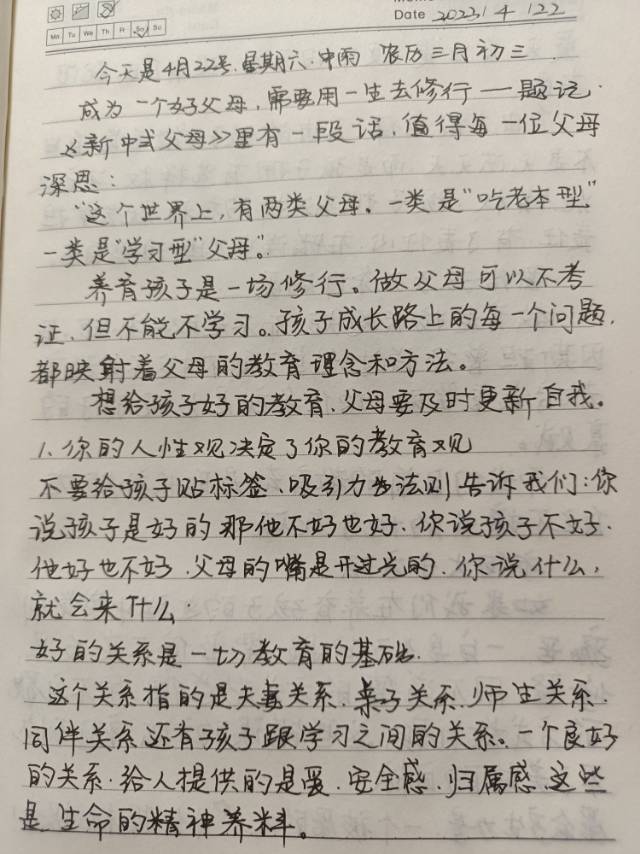 Memo No.
Date 2023/4/22
Mo Tu We Th Fr Sa Su
今天是4月22号.星期六.中雨 农历三月初三
成为一个好父母,需要用一生去修行——题记.
《新中式父母》里有一段话,值得每一位父母
深思:
"这个世界上,有两类父母。一类是"吃老本型",
一类是"学习型"父母。"
养育孩子是一场修行。做父母可以不考
证,但不能不学习。孩子成长路上的每一个问题,
都映射着父母的教育理念和方法。
想给孩子好的教育,父母要及时更新自我。
1、你的人性观决定了你的教育观
不要给孩子贴标签、吸引力法则告诉我们:你
说孩子是好的那他不好也好.你说孩子不好.
他好也不好.父母的嘴是开过光的.你说什么,
就会来什么.
好的关系是一切教育的基础.
这个关系指的是夫妻关系.亲子关系.师生关系.
同伴关系还有孩子跟学习之间的关系。一个良好
的关系.给人提供的是爱.安全感.归属感.这些
是生命的精神养料。